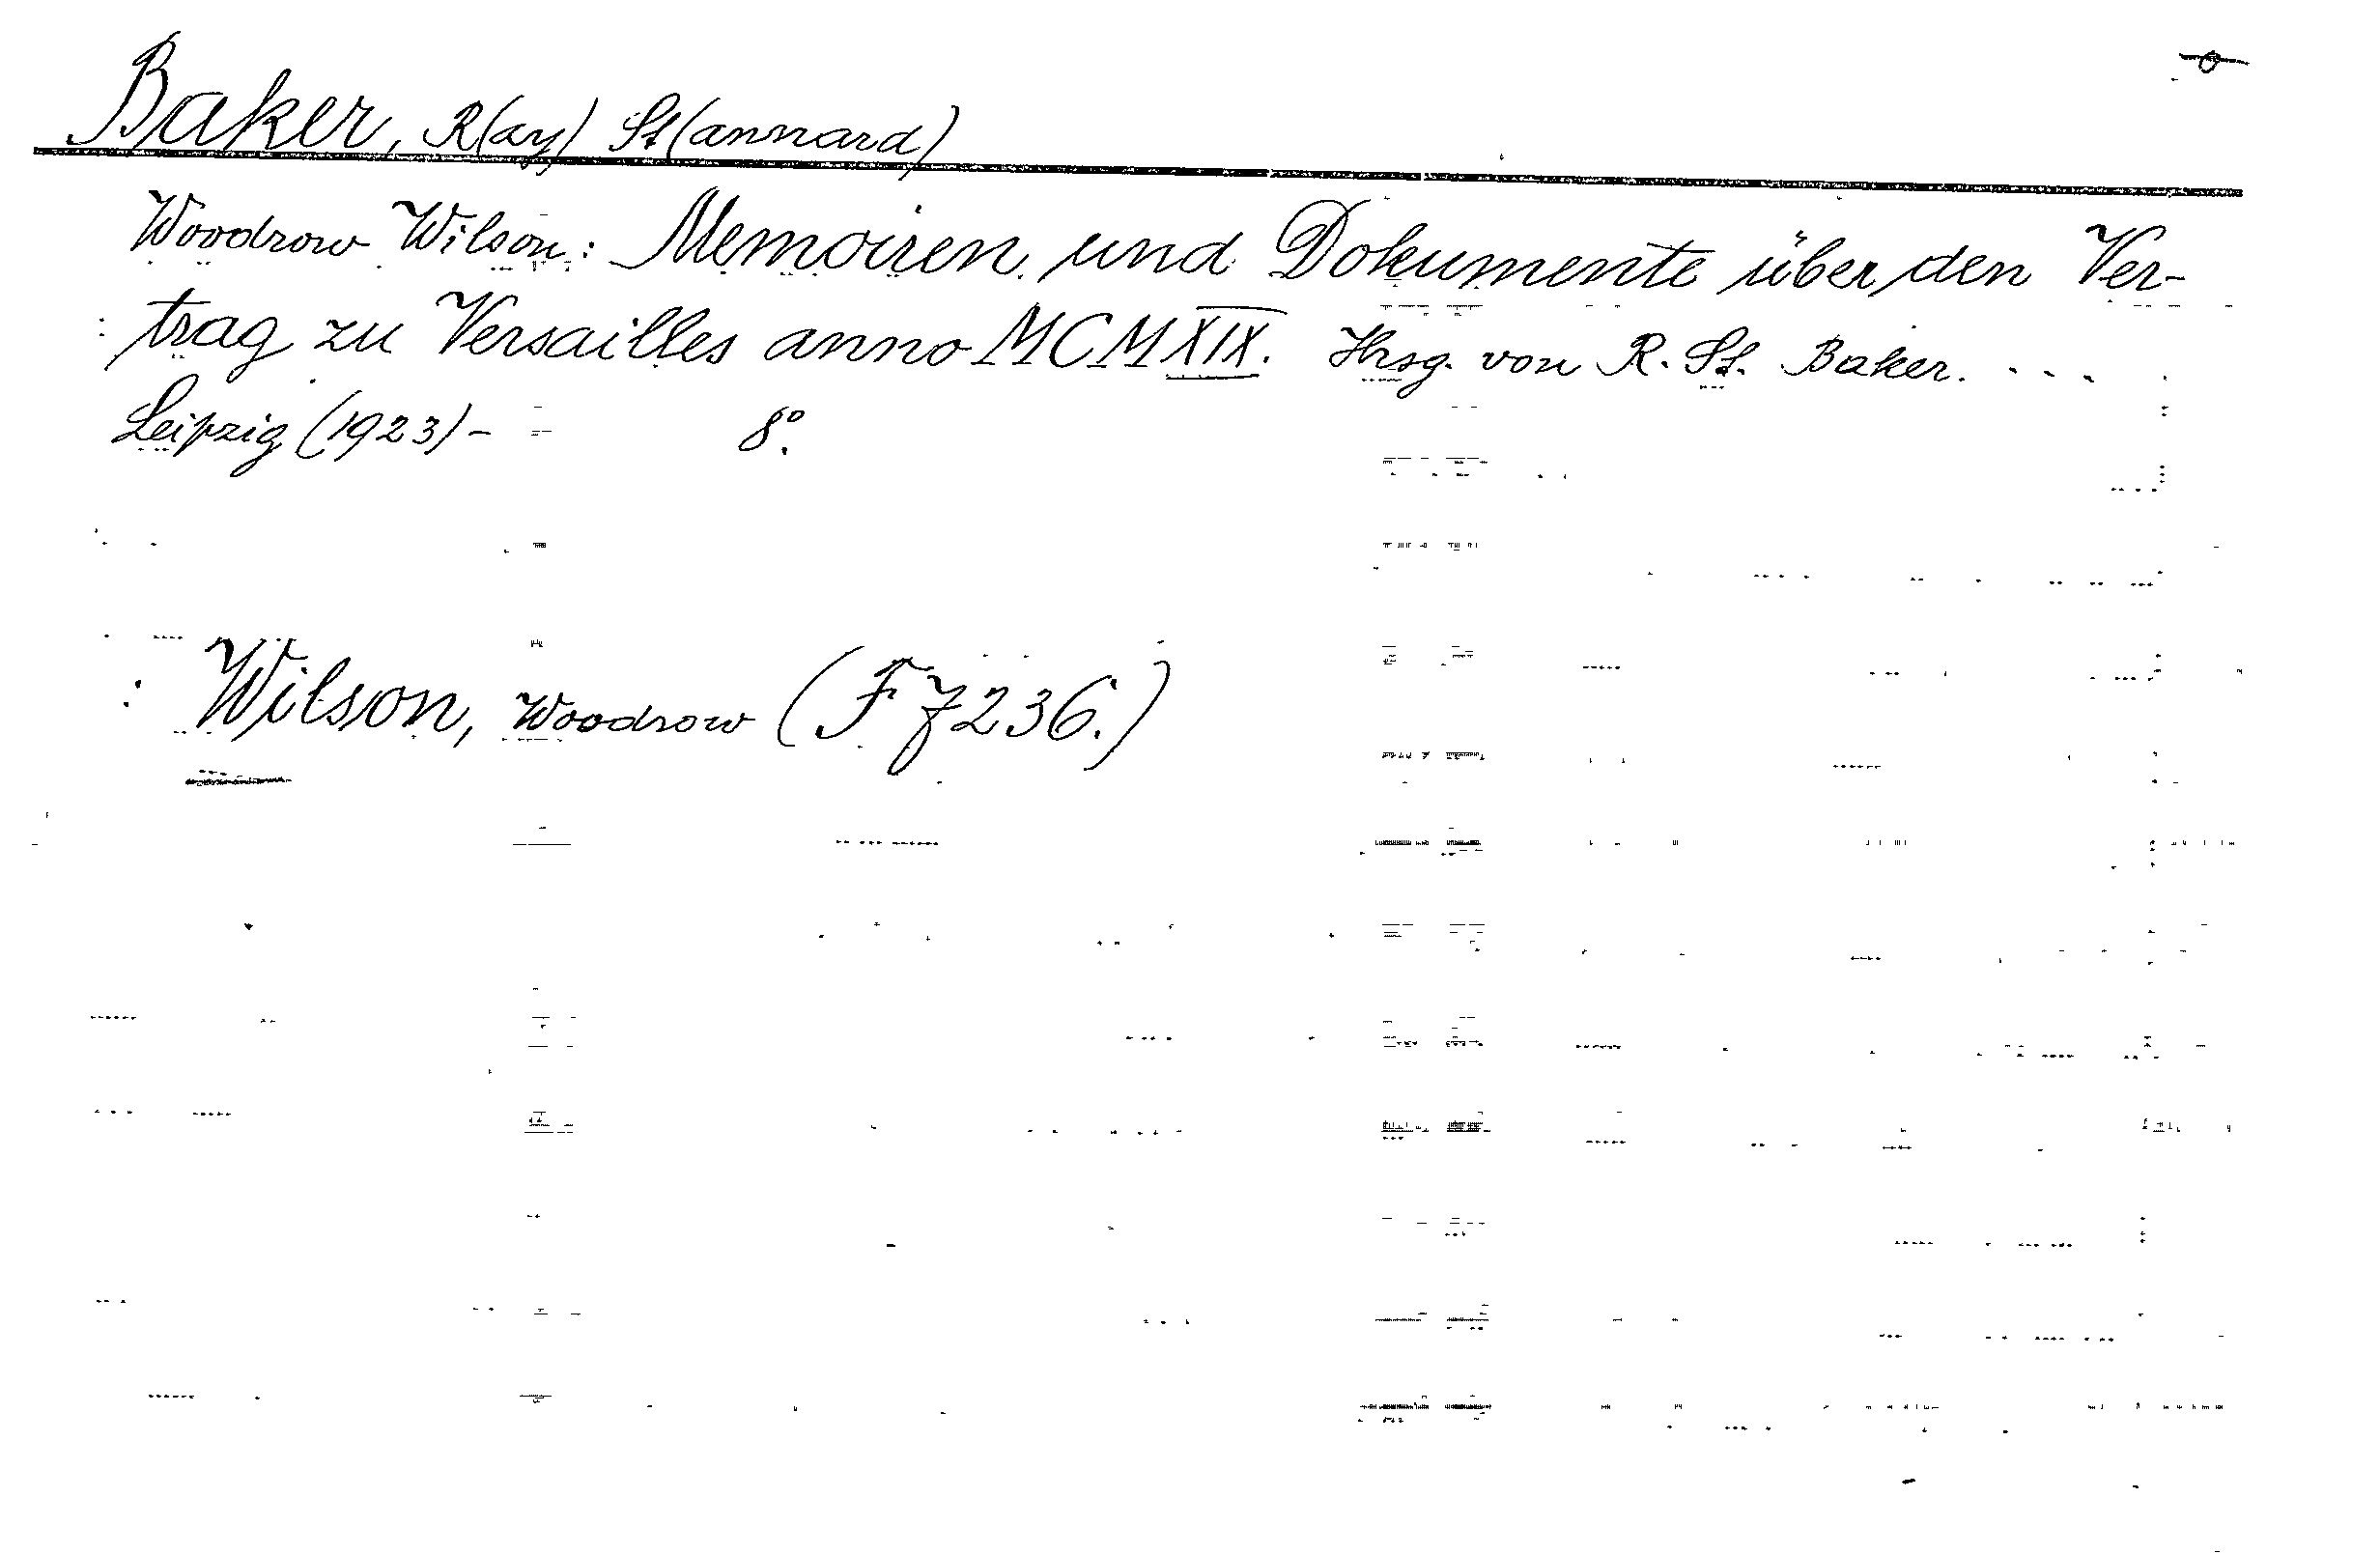 Baker, R(ay) St(annard)
Woodrow Wilson: Memoiren und Dokumente über den Ver-
trag zu Versailles anno MCMXIX. Hrsg. von R. St. Baker. . . .
Leipzig (1923) - 8°.
Wilson, Woodrow (F 7236.)